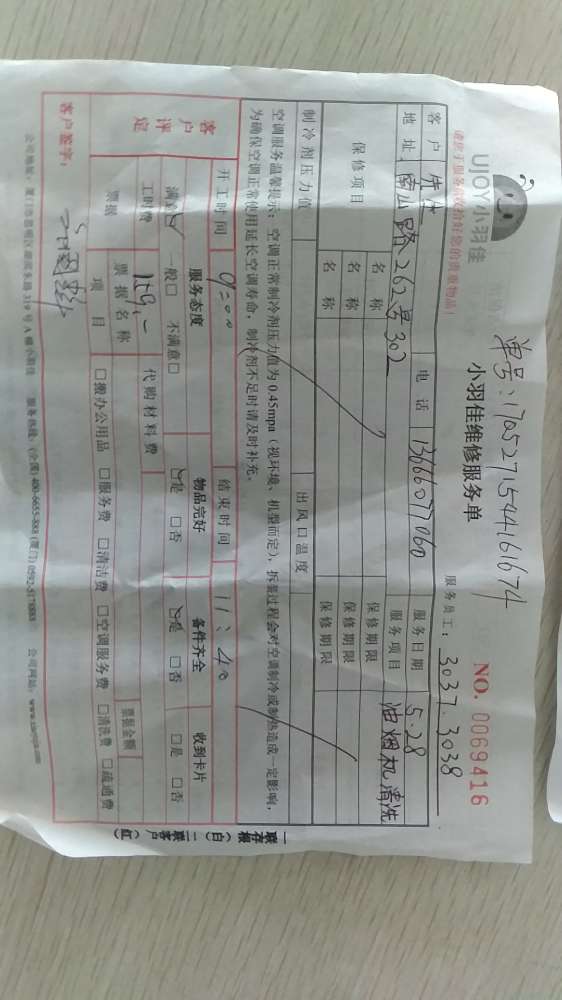 UJOY小羽佳
请您于服务前收拾好您的贵重物品!
单号:1705271544161674
小羽佳维修服务单
NO. 0069416
服务员工: 3037.3038
客户 先生 电话 13666077060 服务日期 5.28
地址 南山路262号302 服务项目 油烟机清洗
保修项目 名称 保修期限
名称 保修期限
名称 保修期限
制冷剂压力值 出风口温度
空调服务温馨提示:空调正常制冷剂压力值为0.45mpa(视环境、机型而定),拆装过程会对空调制冷或制热造成一定影响,
为确保空调正常使用延长空调寿命,制冷剂不足时请及时补充。
开工时间 9:00 结束时间 11:40
客户评定 服务态度 物品完好 备件齐全 收到卡片
满意☑ 一般□ 不满意□ ☑是 □否 ☑是 □否 □是 □否
工时费 159.- 代购材料费
票据 票据名称 票据金额
项目 □搬办公用品 □服务费 □清洁费 □空调服务费 □清洗费 □疏通费
客户签字:
一联存根(白) 二联客户(红)